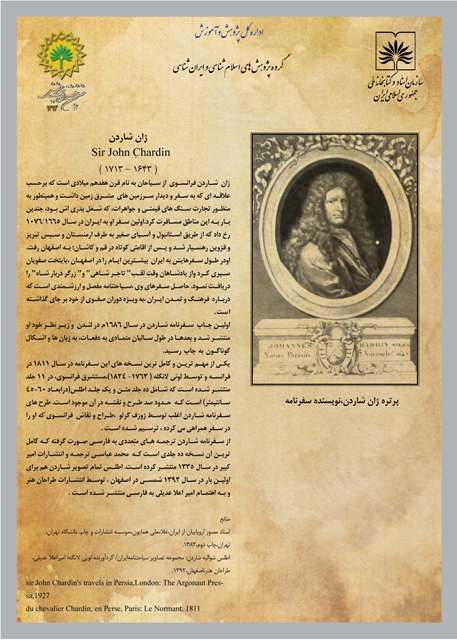 اداره کل پژوهش و آموزش
گروه پژوهش های اسلام شناسی و ایران شناسی
سازمان اسناد و کتابخانه ملی
جمهوری اسلامی ایران
ژان شاردن
Sir John Chardin
( ۱۶۴۳ – ۱۷۱۳ )
ژان شاردن فرانسوی از سیاحان به نام قرن هفدهم میلادی است که برحسب
علاقه ای که به سفر و دیدار سرزمین های مشرق زمین داشت و همینطور به
منظور تجارت سنگ های قیمتی و جواهرات، که شغل پدری اش بود، چندین
بار به این مناطق مسافرت کرد.اولین سفر او به ایران در سال ۱۰۷۶/۱۶۶۵
رخ داد که از طریق استانبول و آسیای صغیر به طرف ارمنستان و سپس تبریز
و قزوین رهسپار شد و پس از اقامتی کوتاه در قم و کاشان؛ به اصفهان رفت.
اودر طول سفرهایش به ایران بیشترین ایام را در اصفهان ،پایتخت صفویان
سپری کرد واز پادشاهان وقت لقب" تاجر شاهی" و" زرگر دربار شاه" را
دریافت نمود. حاصل سفرهای وی ،سیاحتنامه مفصل و ارزشمندی است که
درباره فرهنگ و تمدن ایران ،به ویژه دوران صفوی از خود بر جای گذاشته
است.
اولین چاپ سفرنامه شاردن در سال ۱۶۸۶م در لندن و زیر نظر خود او
منتشر شد و بعدها در طول سالیان متمادی به دفعات، به زبان ها و اشکال
گوناگون به چاپ رسید.
یکی از مهم ترین و کامل ترین نسخه های این سفرنامه در سال ۱۸۱۱ در
فرانسه و توسط لوئی لانگله (۱۷۶۳- ۱۸۲۴)مستشرق فرانسوی، در ۱۱ جلد
منتشر شده است که شامل ده جلد متن و یک جلد اطلس(درابعاد ۶۰×۵۰
سانتیمتر) است که حدود صد طرح و نقشه در آن موجود است. طرح های
سفرنامه شاردن اغلب توسط ژوزف گرلو ،طراح و نقاش فرانسوی که او را
در سفر همراهی می کرده ، ترسیم شده است .
از سفرنامه شاردن ترجمه های متعددی به فارسی صورت گرفته که کامل
ترین آن نسخه ده جلدی است که محمد عباسی ترجمه و انتشارات امیر
کبیر در سال ۱۳۳۵ منتشر کرده است. اطلس تمام تصویر شاردن هم برای
اولین بار در سال ۱۳۹۲ شمسی در اصفهان ، توسط انتشارات طراحان هنر
و به اهتمام امیر اعلا عدیلی به فارسی منتشر شده است .
پرتره ژان شاردن،نویسنده سفرنامه
JOHANNES CHARDIN
منابع
اسناد مصور اروپاییان از ایران،غلامعلی همایون،موسسه انتشارات و چاپ دانشگاه تهران،
تهران،چاپ دوم،۱۳۸۳.
اطلس شوالیه شاردن، مجموعه تصاویر سیاحتنامه ایران/ گردآورنده لویی لانگله؛ امیراعلا عدیلی،
طراحان هنر،اصفهان،۱۳۹۲.
sir John Chardin's travels in Persia,London: The Argonaut Pres-
sm,1927
du chevalier Chardin, en Perse, Paris: Le Normant, 1811